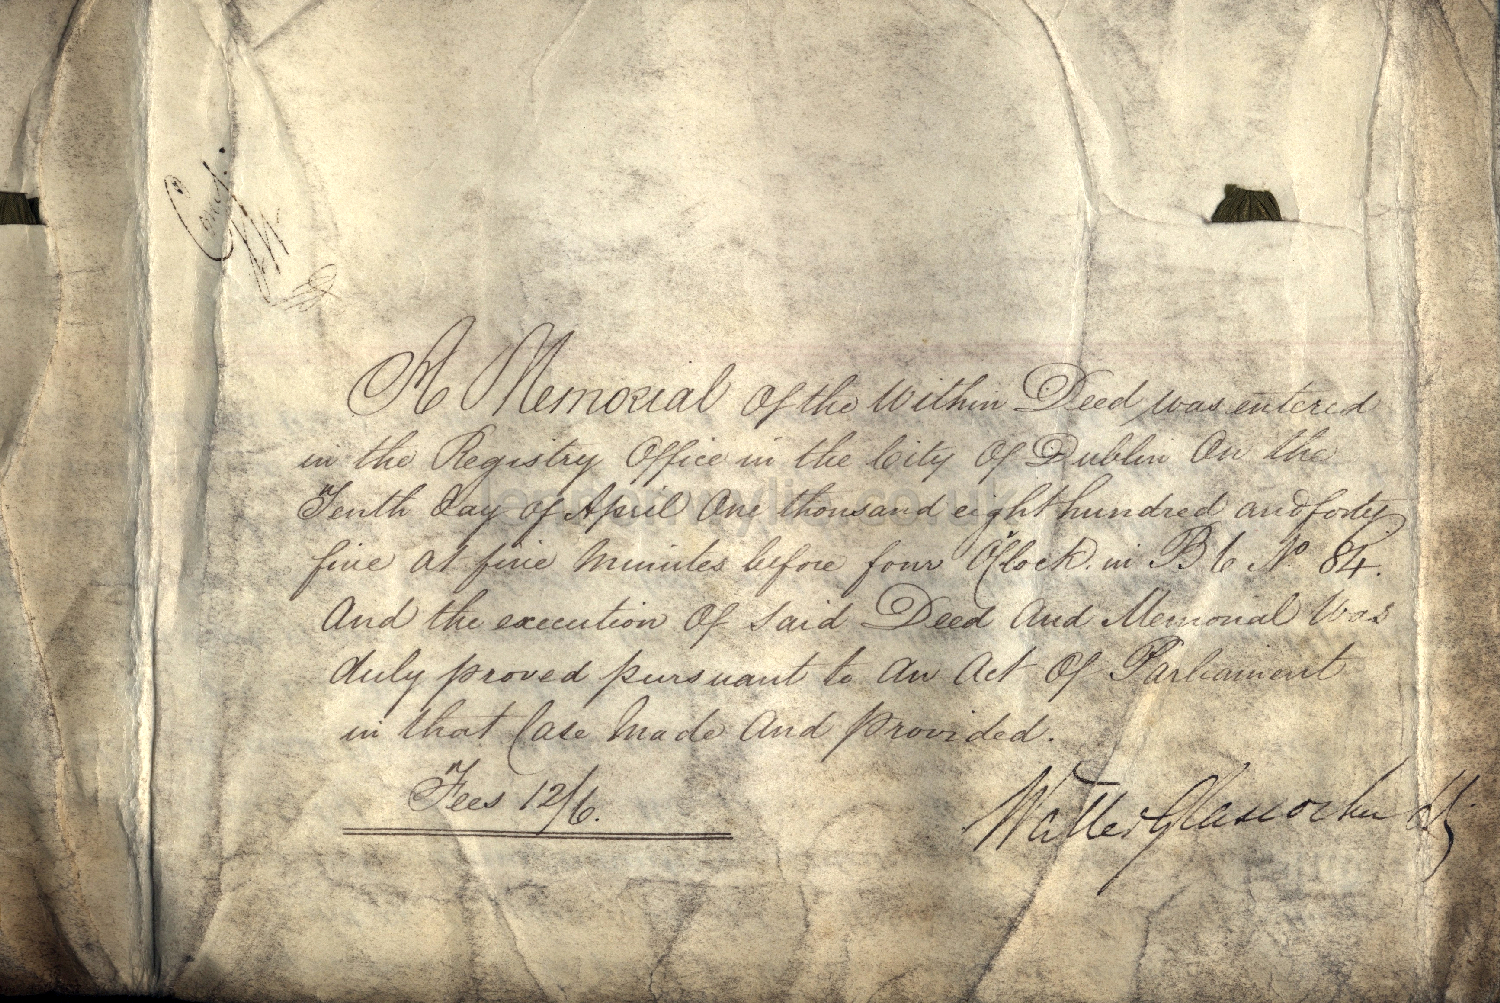 A Memorial Of the Within Deed was entered
in the Registry Office in the City Of Dublin On the
Tenth day of April One thousand eight hundred and forty
five at five Minutes before four O'Clock. in B 6 No. 84.
And the execution Of Said Deed And Memorial Was
duly proved pursuant to An Act Of Parliament
in that Case Made And provided.
Fees 12/6.
Walter Glascock